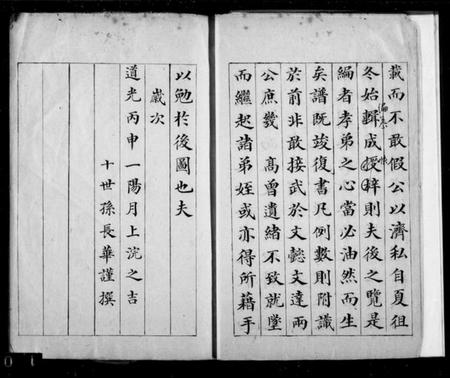 載而不敢假公以濟私自夏徂
冬始輯成授梓則夫後之覽是
編者孝弟之心當必油然而生
矣譜既竣復書凡例數則附識
於前非敢接武於文懿文達兩
公庶幾 高曾遺緒不致就墜
而繼起諸弟姪或亦得所藉手
以勉於後圖也夫
歲次
道光丙申一陽月上浣之吉
十世孫長華謹撰